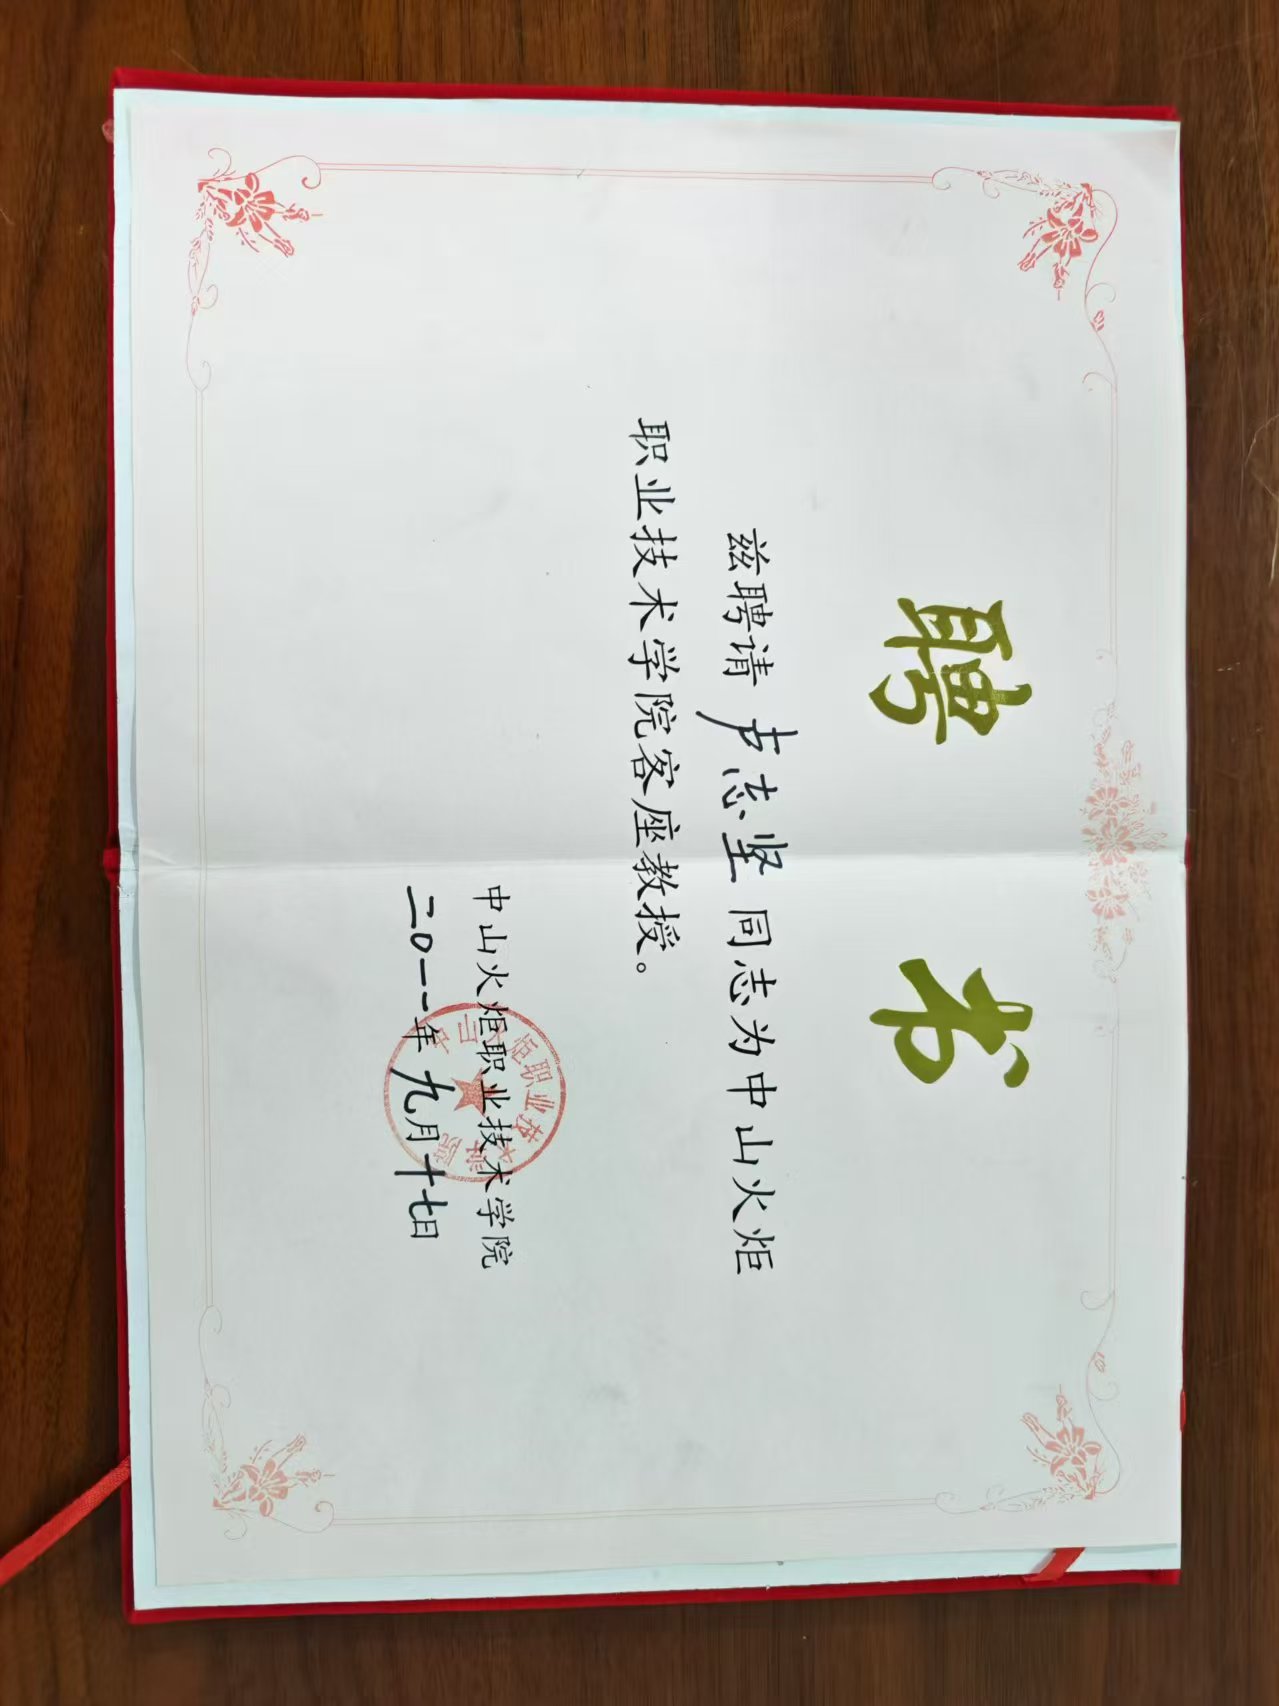 聘书
兹聘请 卢志坚 同志为中山火炬
职业技术学院客座教授。
中山火炬职业技术学院
二〇一一年九月十七日